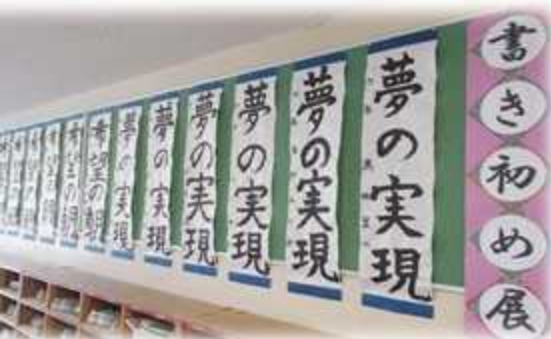 書き初め展
夢の実現
夢の実現
夢の実現
夢の実現
夢の実現
夢の実現
希望の朝
希望の朝
希望の朝